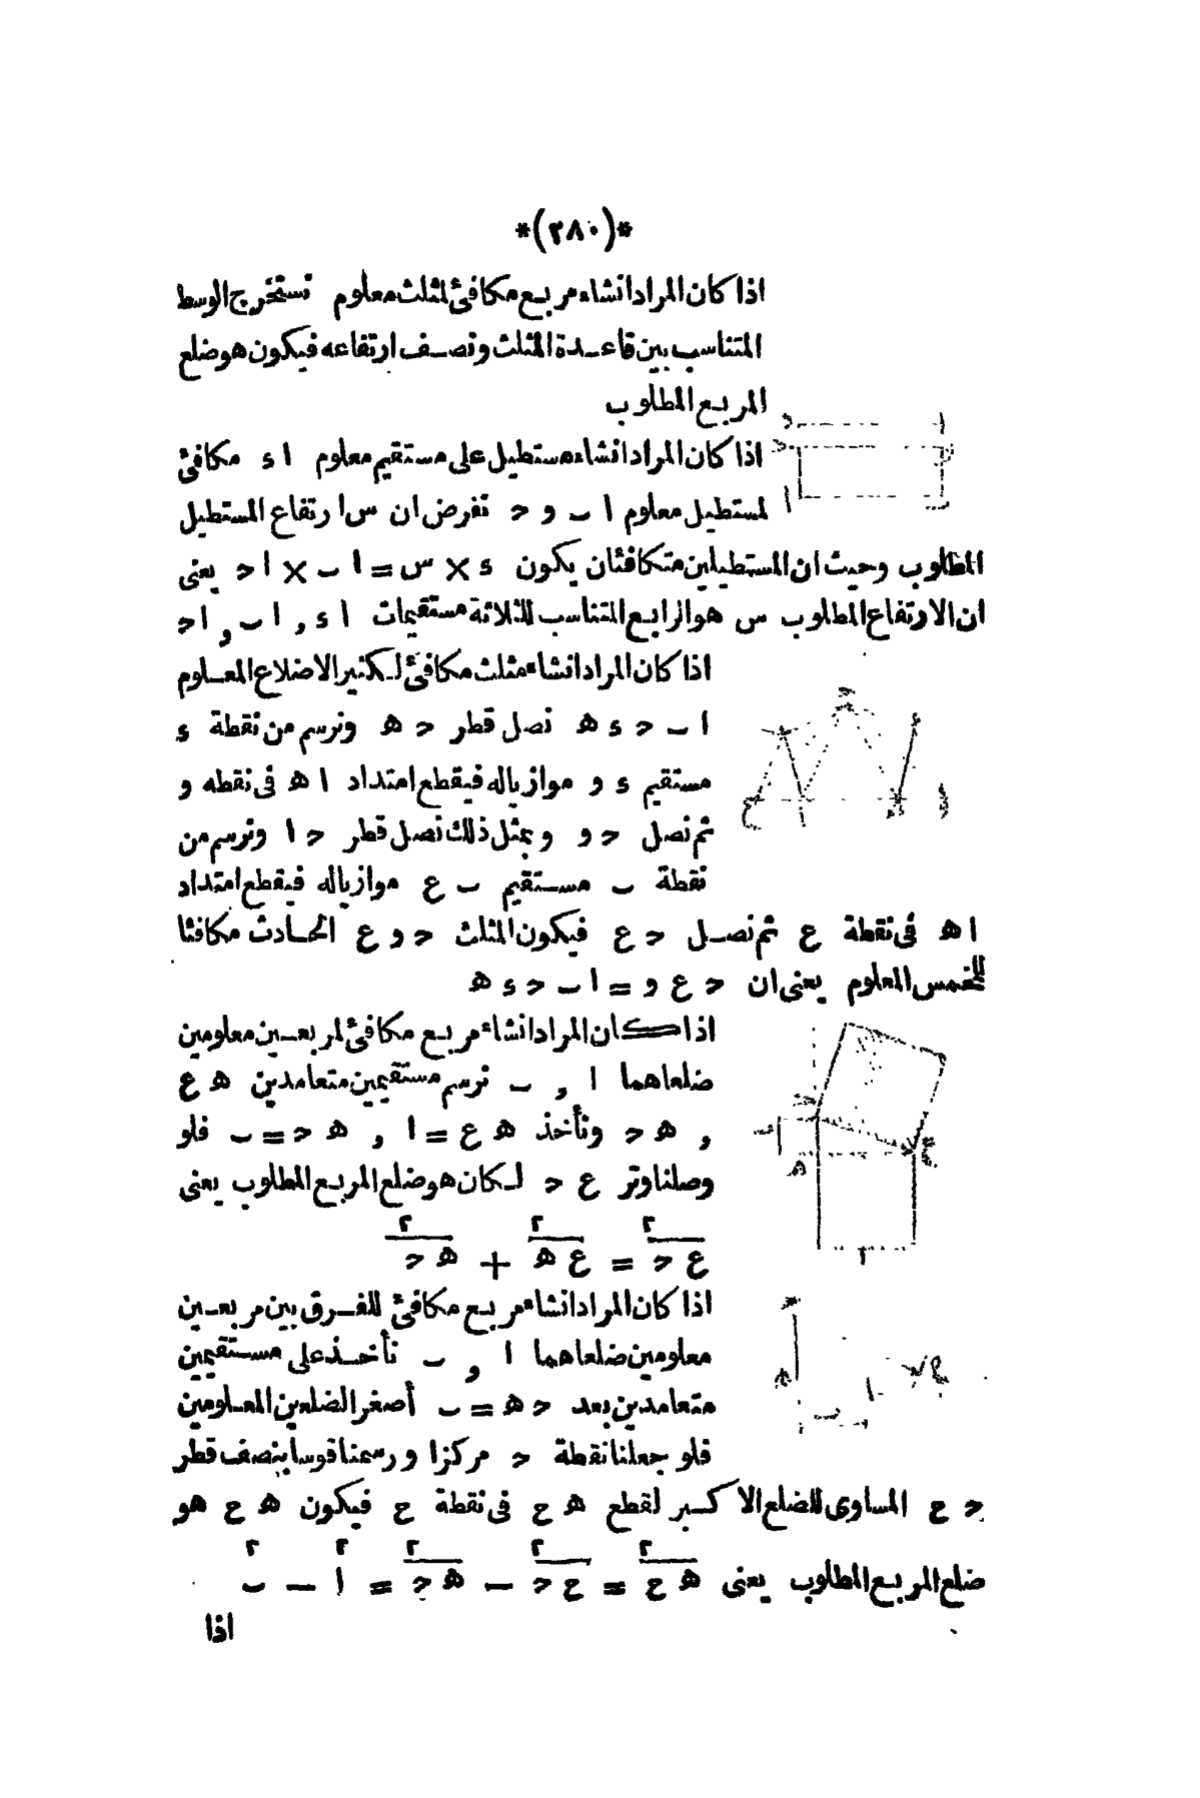 *(٢٨٠)*
اذا كان المراد انشاء مربع مكافئ لمثلث معلوم نستخرج الوسط
المتناسب بين قاعدة المثلث ونصف ارتفاعه فيكون هو ضلع
المربع المطلوب
اذا كان المراد انشاء مستطيل على مستقيم معلوم ا ء مكافئ
لمستطيل معلوم ا ب و ح نفرض ان س ارتفاع المستطيل
المطلوب وحيث ان المستطيلين متكافئان يكون ء × س = ا ب × ا ح يعنى
ان الارتفاع المطلوب س هو الرابع المتناسب للثلاثة مستقيمات ا ء , ا ب , ا ح
اذا كان المراد انشاء مثلث مكافئ لكثير الاضلاع المعلوم
ا ب ح ء ه نصل قطر ح ه ونرسم من نقطة ء
مستقيم ء و موازيا له فيقطع امتداد ا ه فى نقطه و
ثم نصل ح و وبمثل ذلك نصل قطر ح ا ونرسم من
نقطة ب مستقيم ب ع موازيا له فيقطع امتداد
ا ه فى نقطة ع ثم نصل ح ع فيكون المثلث ح و ع الحادث مكافئا
للخمس المعلوم يعنى ان ح ع و = ا ب ح ء ه
اذا كان المراد انشاء مربع مكافئ لمربعين معلومين
ضلعاهما ا , ب نرسم مستقيمين متعامدين ه ع
, ه ح ونأخذ ه ع = ا , ه ح = ب فلو
وصلنا وتر ع ح لكان هو ضلع المربع المطلوب يعنى
ع ح٢ = ع ه٢ + ه ح٢
اذا كان المراد انشاء مربع مكافئ للفرق بين مربعين
معلومين ضلعاهما ا , ب نأخذ على مستقيمين
متعامدين بعد ح ه = ب أصغر الضلعين المعلومين
فلو جعلنا نقطة ح مركزا ورسمنا قوسا بنصف قطر
ح ع المساوى للضلع الاكبر لقطع ه ع فى نقطة ع فيكون ه ع هو
ضلع المربع المطلوب يعنى ه ع٢ = ع ح٢ − ه ح٢ = ا٢ − ب٢
اذا